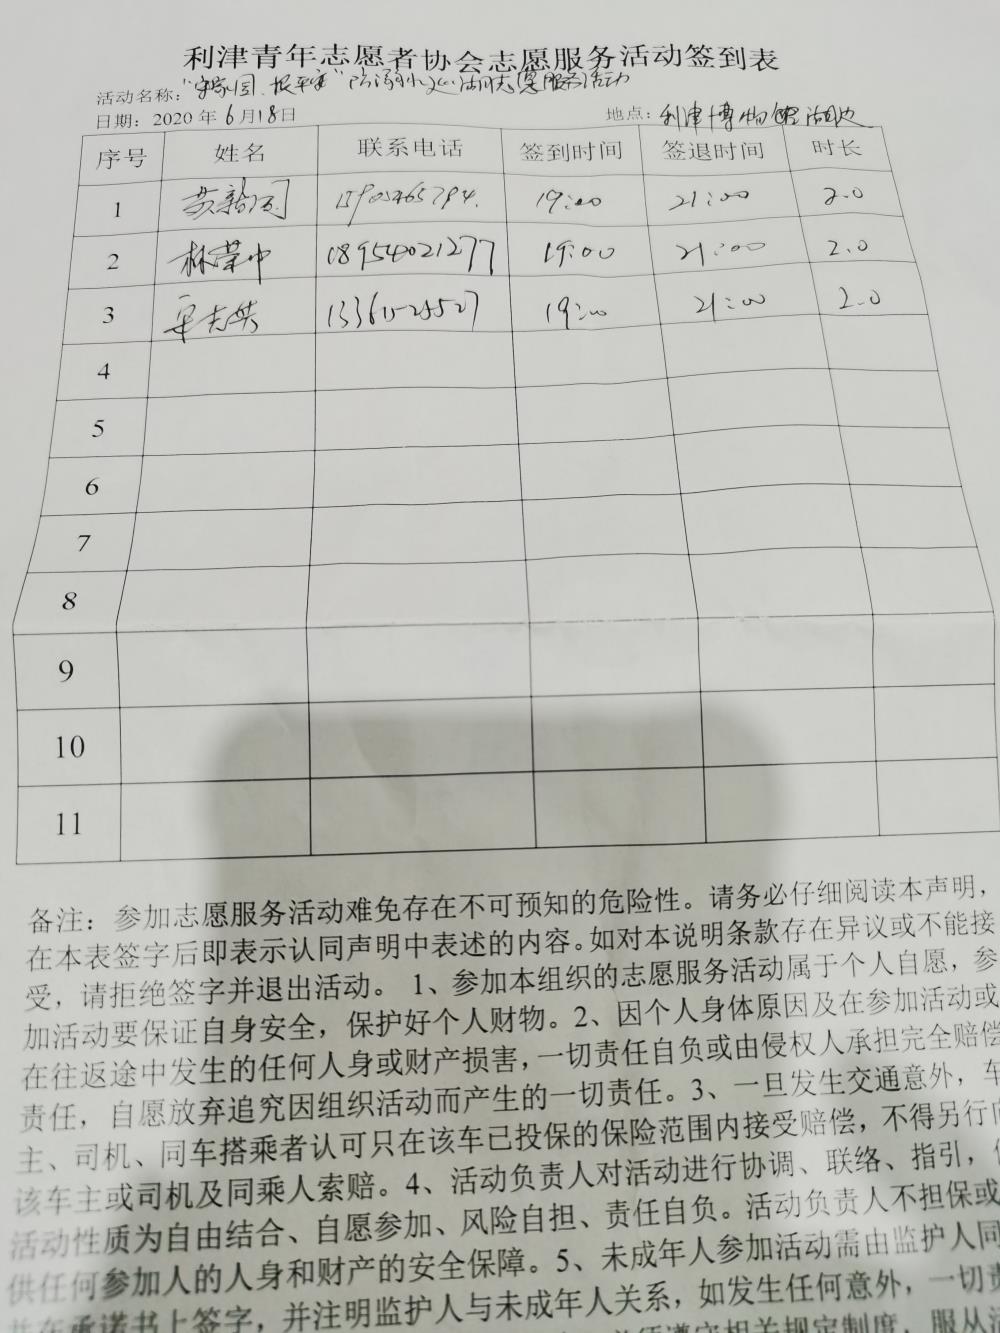 利津青年志愿者协会志愿服务活动签到表
活动名称："守家园、保平安"防溺水巡湖志愿服务活动
日期：2020年6月18日 地点：利津博物馆湖边
序号 姓名 联系电话 签到时间 签退时间 时长
1 19:00 21:00 2.0
2 林荣中 18954021277 19:00 21:00 2.0
3 19:00 21:00 2.0
4
5
6
7
8
9
10
11
备注：参加志愿服务活动难免存在不可预知的危险性。请务必仔细阅读本声明，
在本表签字后即表示认同声明中表述的内容。如对本说明条款存在异议或不能接
受，请拒绝签字并退出活动。 1、参加本组织的志愿服务活动属于个人自愿，参
加活动要保证自身安全，保护好个人财物。2、因个人身体原因及在参加活动或
在往返途中发生的任何人身或财产损害，一切责任自负或由侵权人承担完全赔偿
责任，自愿放弃追究因组织活动而产生的一切责任。3、一旦发生交通意外，车
主、司机、同车搭乘者认可只在该车已投保的保险范围内接受赔偿，不得另行向
该车主或司机及同乘人索赔。4、活动负责人对活动进行协调、联络、指引，
活动性质为自由结合、自愿参加、风险自担、责任自负。活动负责人不担保或
供任何参加人的人身和财产的安全保障。5、未成年人参加活动需由监护人同
并在承诺书上签字，并注明监护人与未成年人关系，如发生任何意外，一切责
必须遵守相关规定制度，服从活